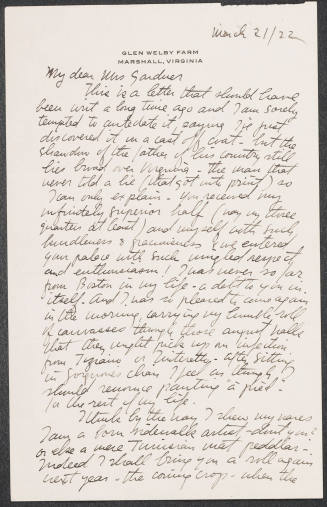 March 21/22
GLEN WELBY FARM
MARSHALL, VIRGINIA
My dear Mrs Gardner
This is a letter that should have
been writ a long time ago and I am sorely
tempted to antedate it saying I've just
discovered it in a cast off coat - but the
shadow of the father of his country still
lies broad over Virginia - the man that
never told a lie (that got into print) so
I can only explain - You received my
infinitely superior half (nay my three
quarters at least) and myself with such
kindliness & graciousness & we entered
your palace with such mingled respect
and enthusiasm! I was never so far
from Boston in my life - a debt to you in
itself. And I was so pleased to come again
in the morning carrying my humble roll
of canvasses through those august halls
that they might pick up an infection
from Tiziano or Tintoretto - After sitting
in chair I feel as though I
should renounce painting "à pied"
for the rest of my life.
I think by the way I show my wares
I am a born sidewalk artist - don't you?
or else a mere Tunisian peddlar -
Indeed I shall bring you a roll again
next year - the coming crop - when the